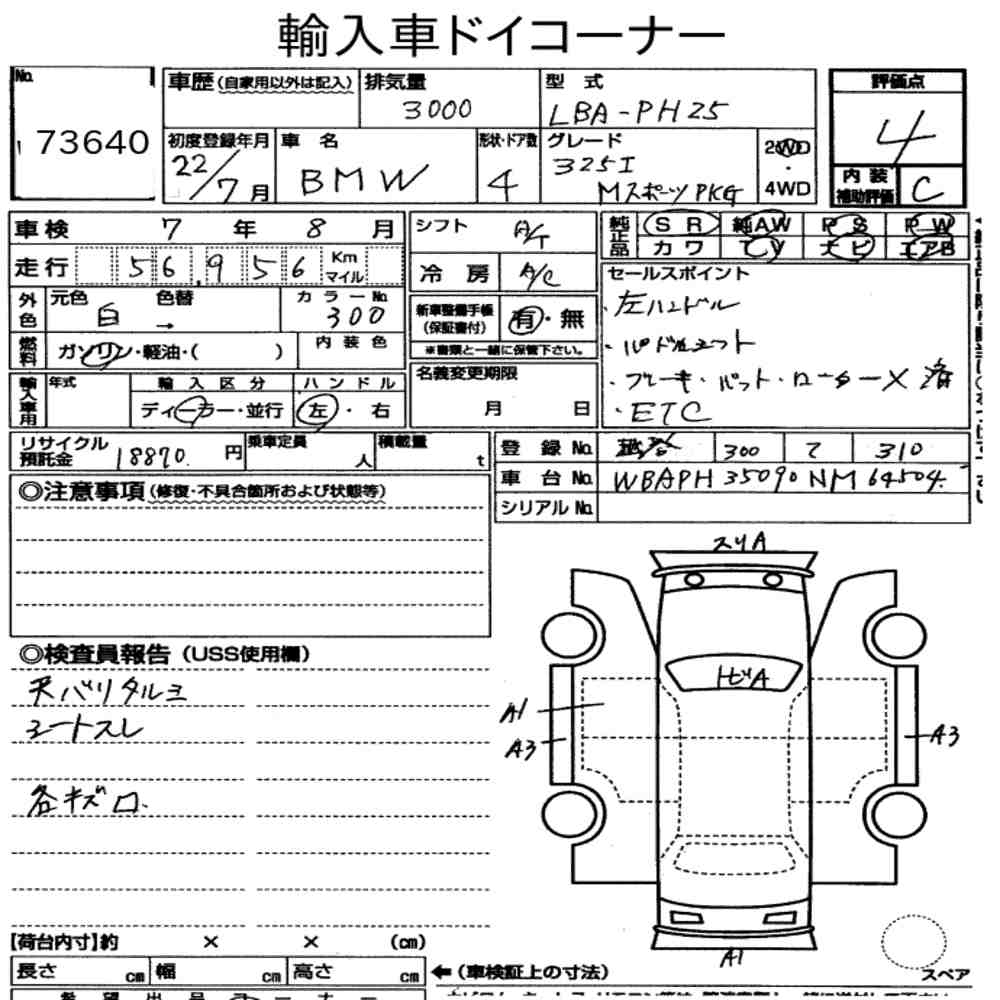 輸入車ドイコーナー
No. 73640
車歴(自家用以外は記入)
排気量 3000
型式 LBA-PH25
評価点 4
初度登録年月 22/7月
車名 BMW
形状・ドア数 4
グレード 325I
Mスポーツ PKG
2WD・4WD
内装補助評価 C
車検 7年 8月
シフト A/T
純正品 SR 純AW PS PW
カワ TV ナビ エアB
走行 56,956 Km マイル
冷房 A/C
セールスポイント
・左ハンドル
・パドルシフト
・ブレーキ・パット・ローター 済
・ETC
外色 元色 白 → 色替
カラーNo. 300
新車整備手帳(保証書付) 有・無
※書類と一緒に保管下さい。
燃料 ガソリン・軽油・( )
内装色
輸入車用 年式
輸入区分 ディーラー・並行
ハンドル 左・右
名義変更期限 月 日
リサイクル預託金 18870.円
乗車定員 人
積載量 t
登録No. 300 て 310
車台No. WBAPH35090NM64504.
シリアルNo.
◎注意事項(修復・不具合箇所および状態等)
◎検査員報告(USS使用欄)
天バリタルミ
シートスレ
各キズ
スリA
トビA
A1
A3
A3
A1
スペア
【荷台内寸】約 × × (cm)
長さ cm 幅 cm 高さ cm
←(車検証上の寸法)
希望出品コーナー